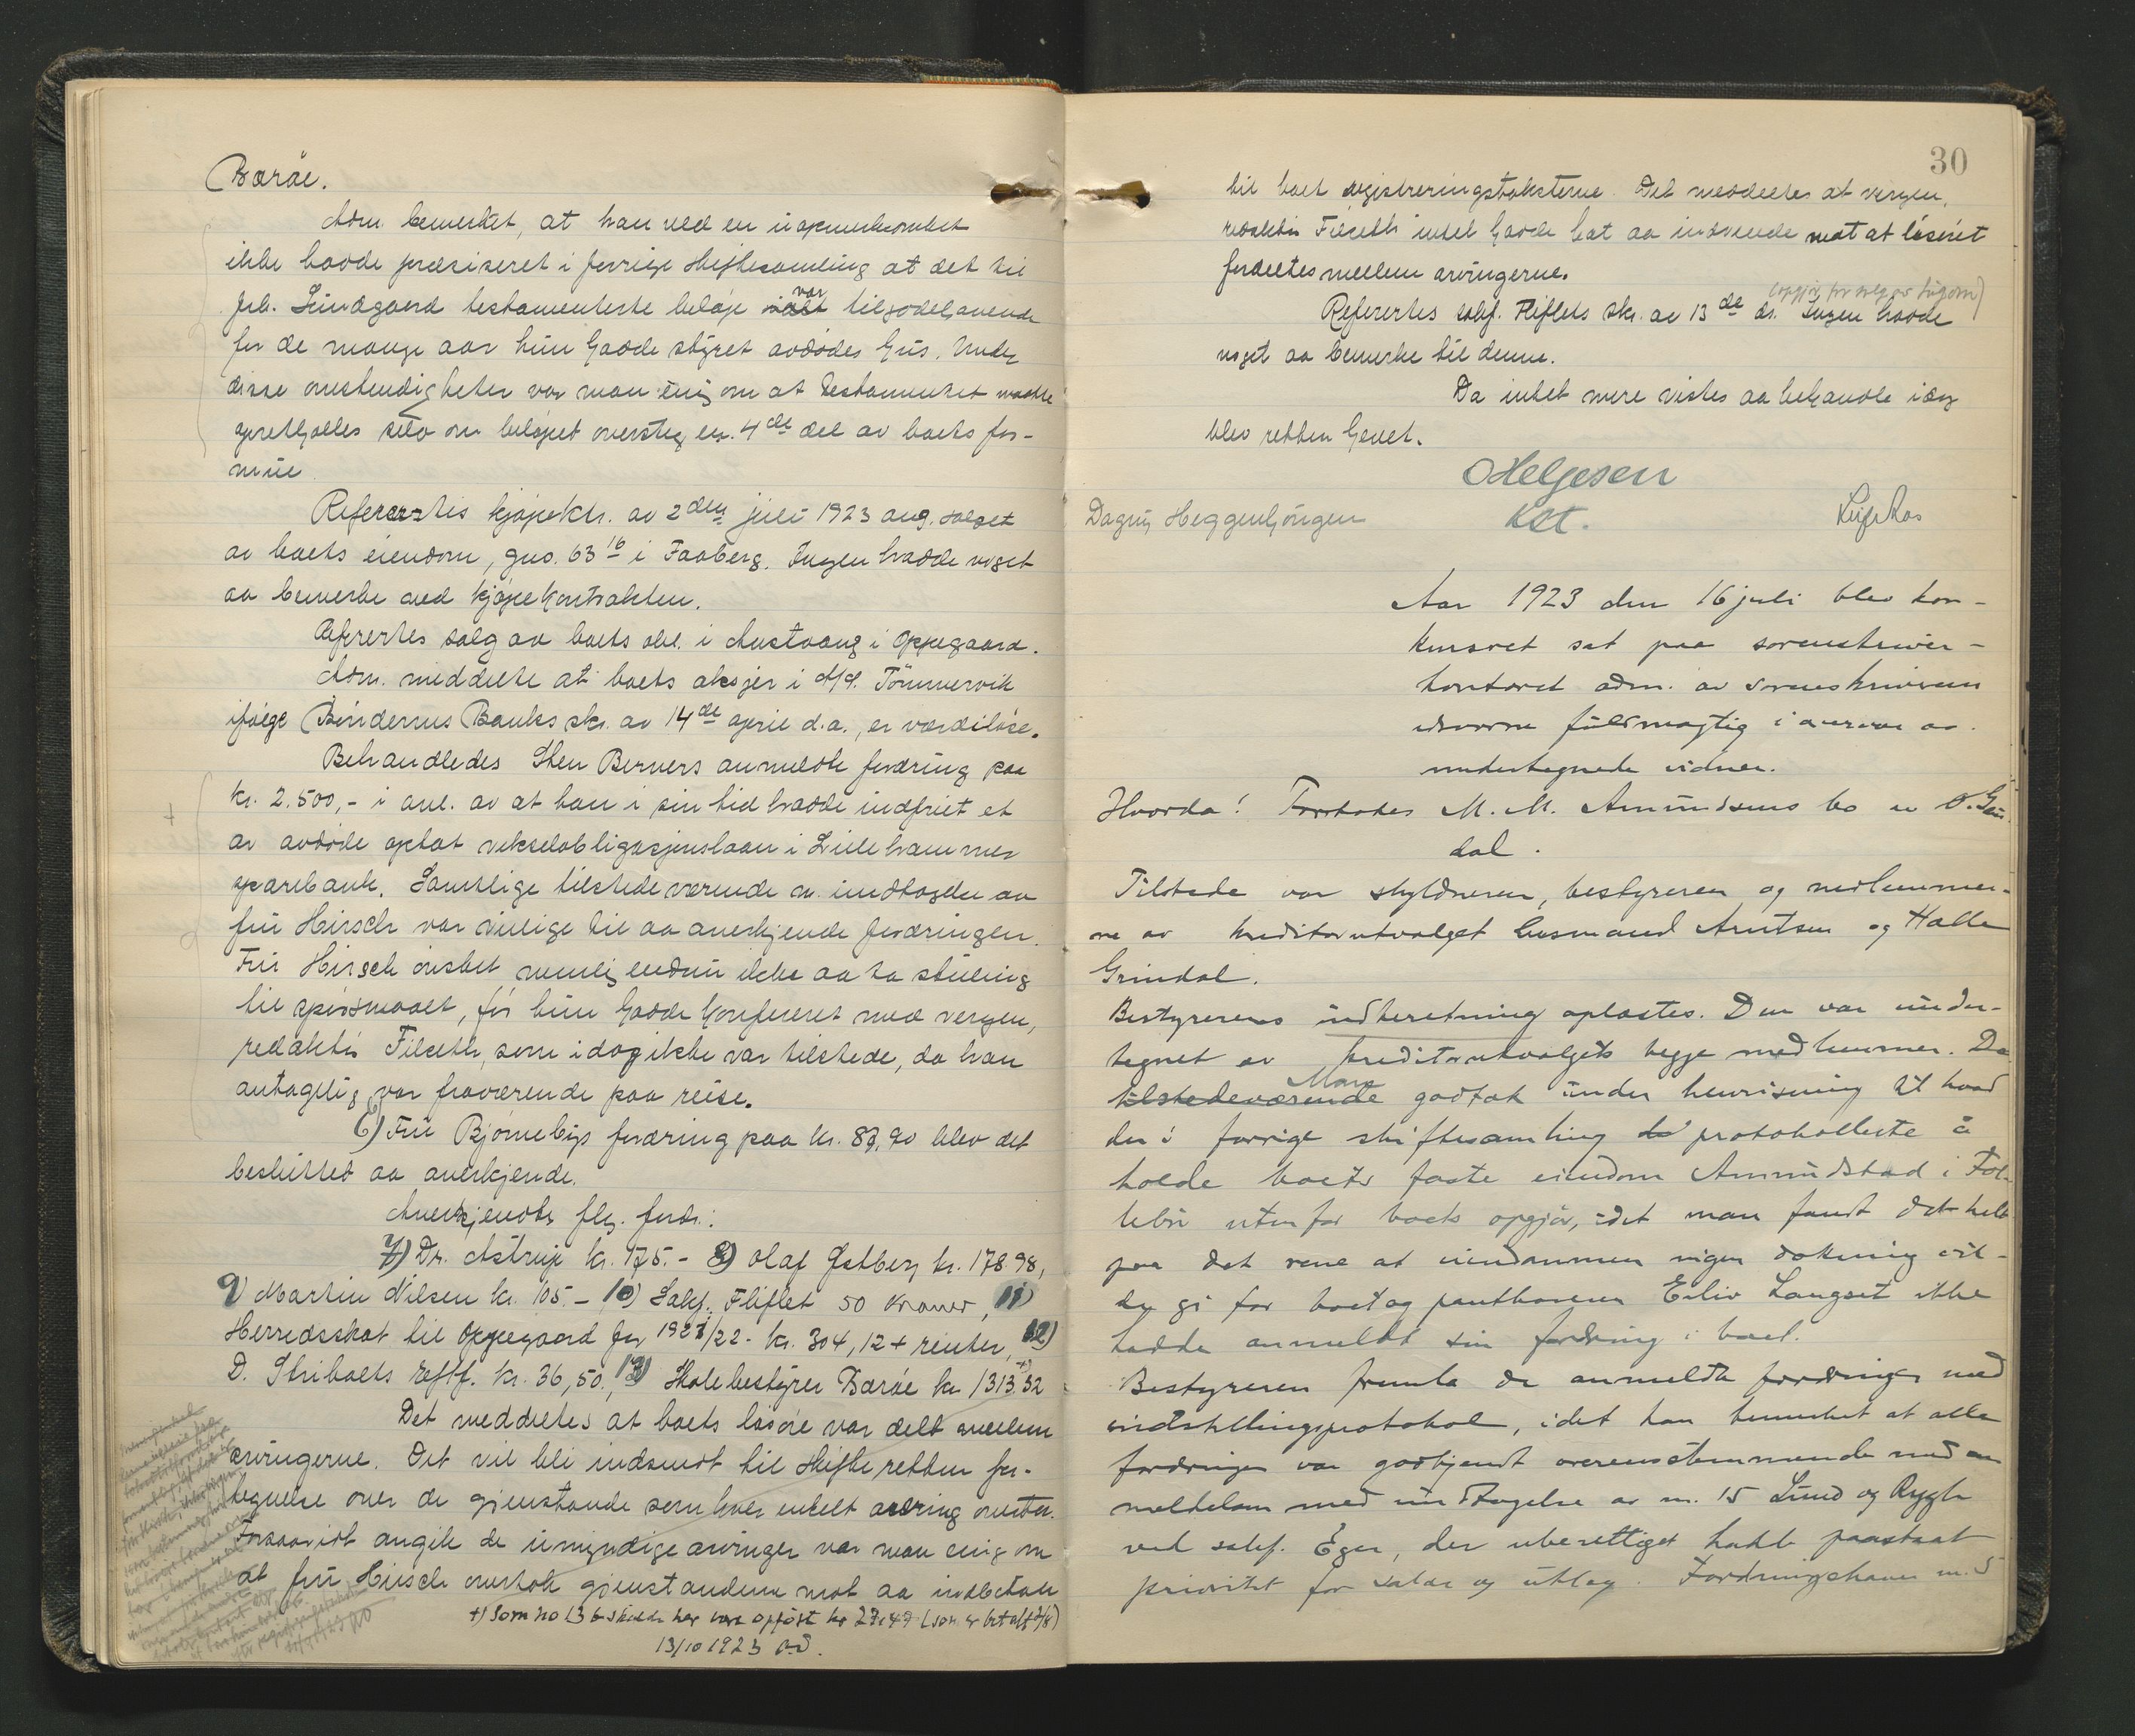 Barøe.
Adm. bemerket, at han ved en uopmerksomhet
ikke hadde præsiseret i forrige skiftesamling at det til
frk. Lundgaard testamenterte beløp var tilgodehavende
for de mange aar hun hadde styret avdødes hus. Under
disse omstendigheter var man enig om at testamentet maatte
opretholdes selv om beløpet oversteg en 4de del av boets for-
mue
Refertes kjøpektr. av 2den juli 1923 ang. salget
av boets eiendom, gno. 63 16 i Faaberg. Ingen hadde noget
aa bemerke ved kjøpekontrakten.
Refertes salg av boets obl. i Austvang i Oppegaard.
Adm. meddelte at boets aksjer i A/S. Tømmervik
ifølge Bøndernes Banks skr. av 14de april d.a., er værdiløse.
Behandledes Sten Berners anmeldte fordring paa
kr. 2.500,- i anl. av at han i sin tid hadde indfriet et
av avdøde optat vekselobligasjonslaan i Lillehammer
sparebank. Samtlige tilstedeværende m. undtagelse av
fru Hirsch var villige til aa anerkjende fordringen.
Fru Hirsch ønsket nemlig endnu ikke aa ta stilling
til spørsmaalet, før hun hadde konfereret med vergen,
redaktør Filseth, som idag ikke var tilstede, da han
antagelig var fraværende paa reise.
6) Fru Bjørnebys fordring paa kr. 87,90 blev det
besluttet aa anerkjende.
Anerkjendtes flg. fordr.:
7) Dr. Astrup kr. 175.- 8) Olaf Østberg kr. 178.98,
9) Martin Nilsen kr. 105.- 10) Sakf. Fliflet 50 kroner, 11)
Herredsskat til Oppegaard for 1921/22 - kr. 304,12 + renter, 12)
D. Stribolts eftf. kr. 36,50., 13) Skolebestyrer Barøe kr 1313.32 +)
Det meddeltes at boets løsøre var delt mellem
arvingerne. Det vil bli indsendt til skifteretten for-
tegnelse over de gjenstande som hver enkelt arving overtar.
Forsaavidt angik de umyndige arvinger var man enig om
at fru Hirsch overtok gjenstandene mot aa indbetale
+) Som no 13 b skulde her være opført kr 27.47 (som er betalt)
13/10 1923
30
til boet registreringstakstene. Det meddeltes at vergen,
redaktør Filseth intet hadde hat aa indvende mot at løsøret
fordeltes mellem arvingerne.
(opgjør for salg av eiendom)
Refertes sakf. Fliflets skr. av 13de ds. Ingen hadde
noget aa bemerke til denne.
Da intet mere vistes aa behandle idag
blev retten hevet.
OHelgesen
kst.
Dagny Heggenhougen
Leif Aas
Aar 1923 den 16 juli blev kon-
kursret sat paa sorenskriver-
kontoret adm. av sorenskriveren
edsvorne fuldmægtig i nærvær av
undertegnede vidner.
Hvorda: Foretokes M. M. Amundsens bo i Ø. Gau
dal.
Tilstede var skyldneren, bestyreren og medlemmer-
ne av kreditorutvalget Gusmand Arntsen og Halle
Grindal.
Bestyrerens indberetning oplæstes. Den var under-
tegnet av kreditorutvalgets begge medlemmer. De
tilstedeværende Man godtok under henvisning til hvad
der i forrige skiftesamling protokollerte å
holde boets faste eiendom Amundstad i Fol-
lebu utenfor boets opgjør, idet man fandt det helt
paa det rene at eiendommen ingen dekning vil-
de gi for boet og panthaveren Eiliv Langset ikke
hadde anmeldt sin fordring i boet.
Bestyreren fremla de anmeldte fordringer med
indstillingsprotokol, idet han bemerket at alle
fordringer var godkjendt overensstemmende med an
meldelsen med undtagelse av nr. 15 Lund og Rygh
ved sakf. Eger, der uberettiget hadde paastaat
prioritet for salær og utlæg. Fordringshaver nr. 5